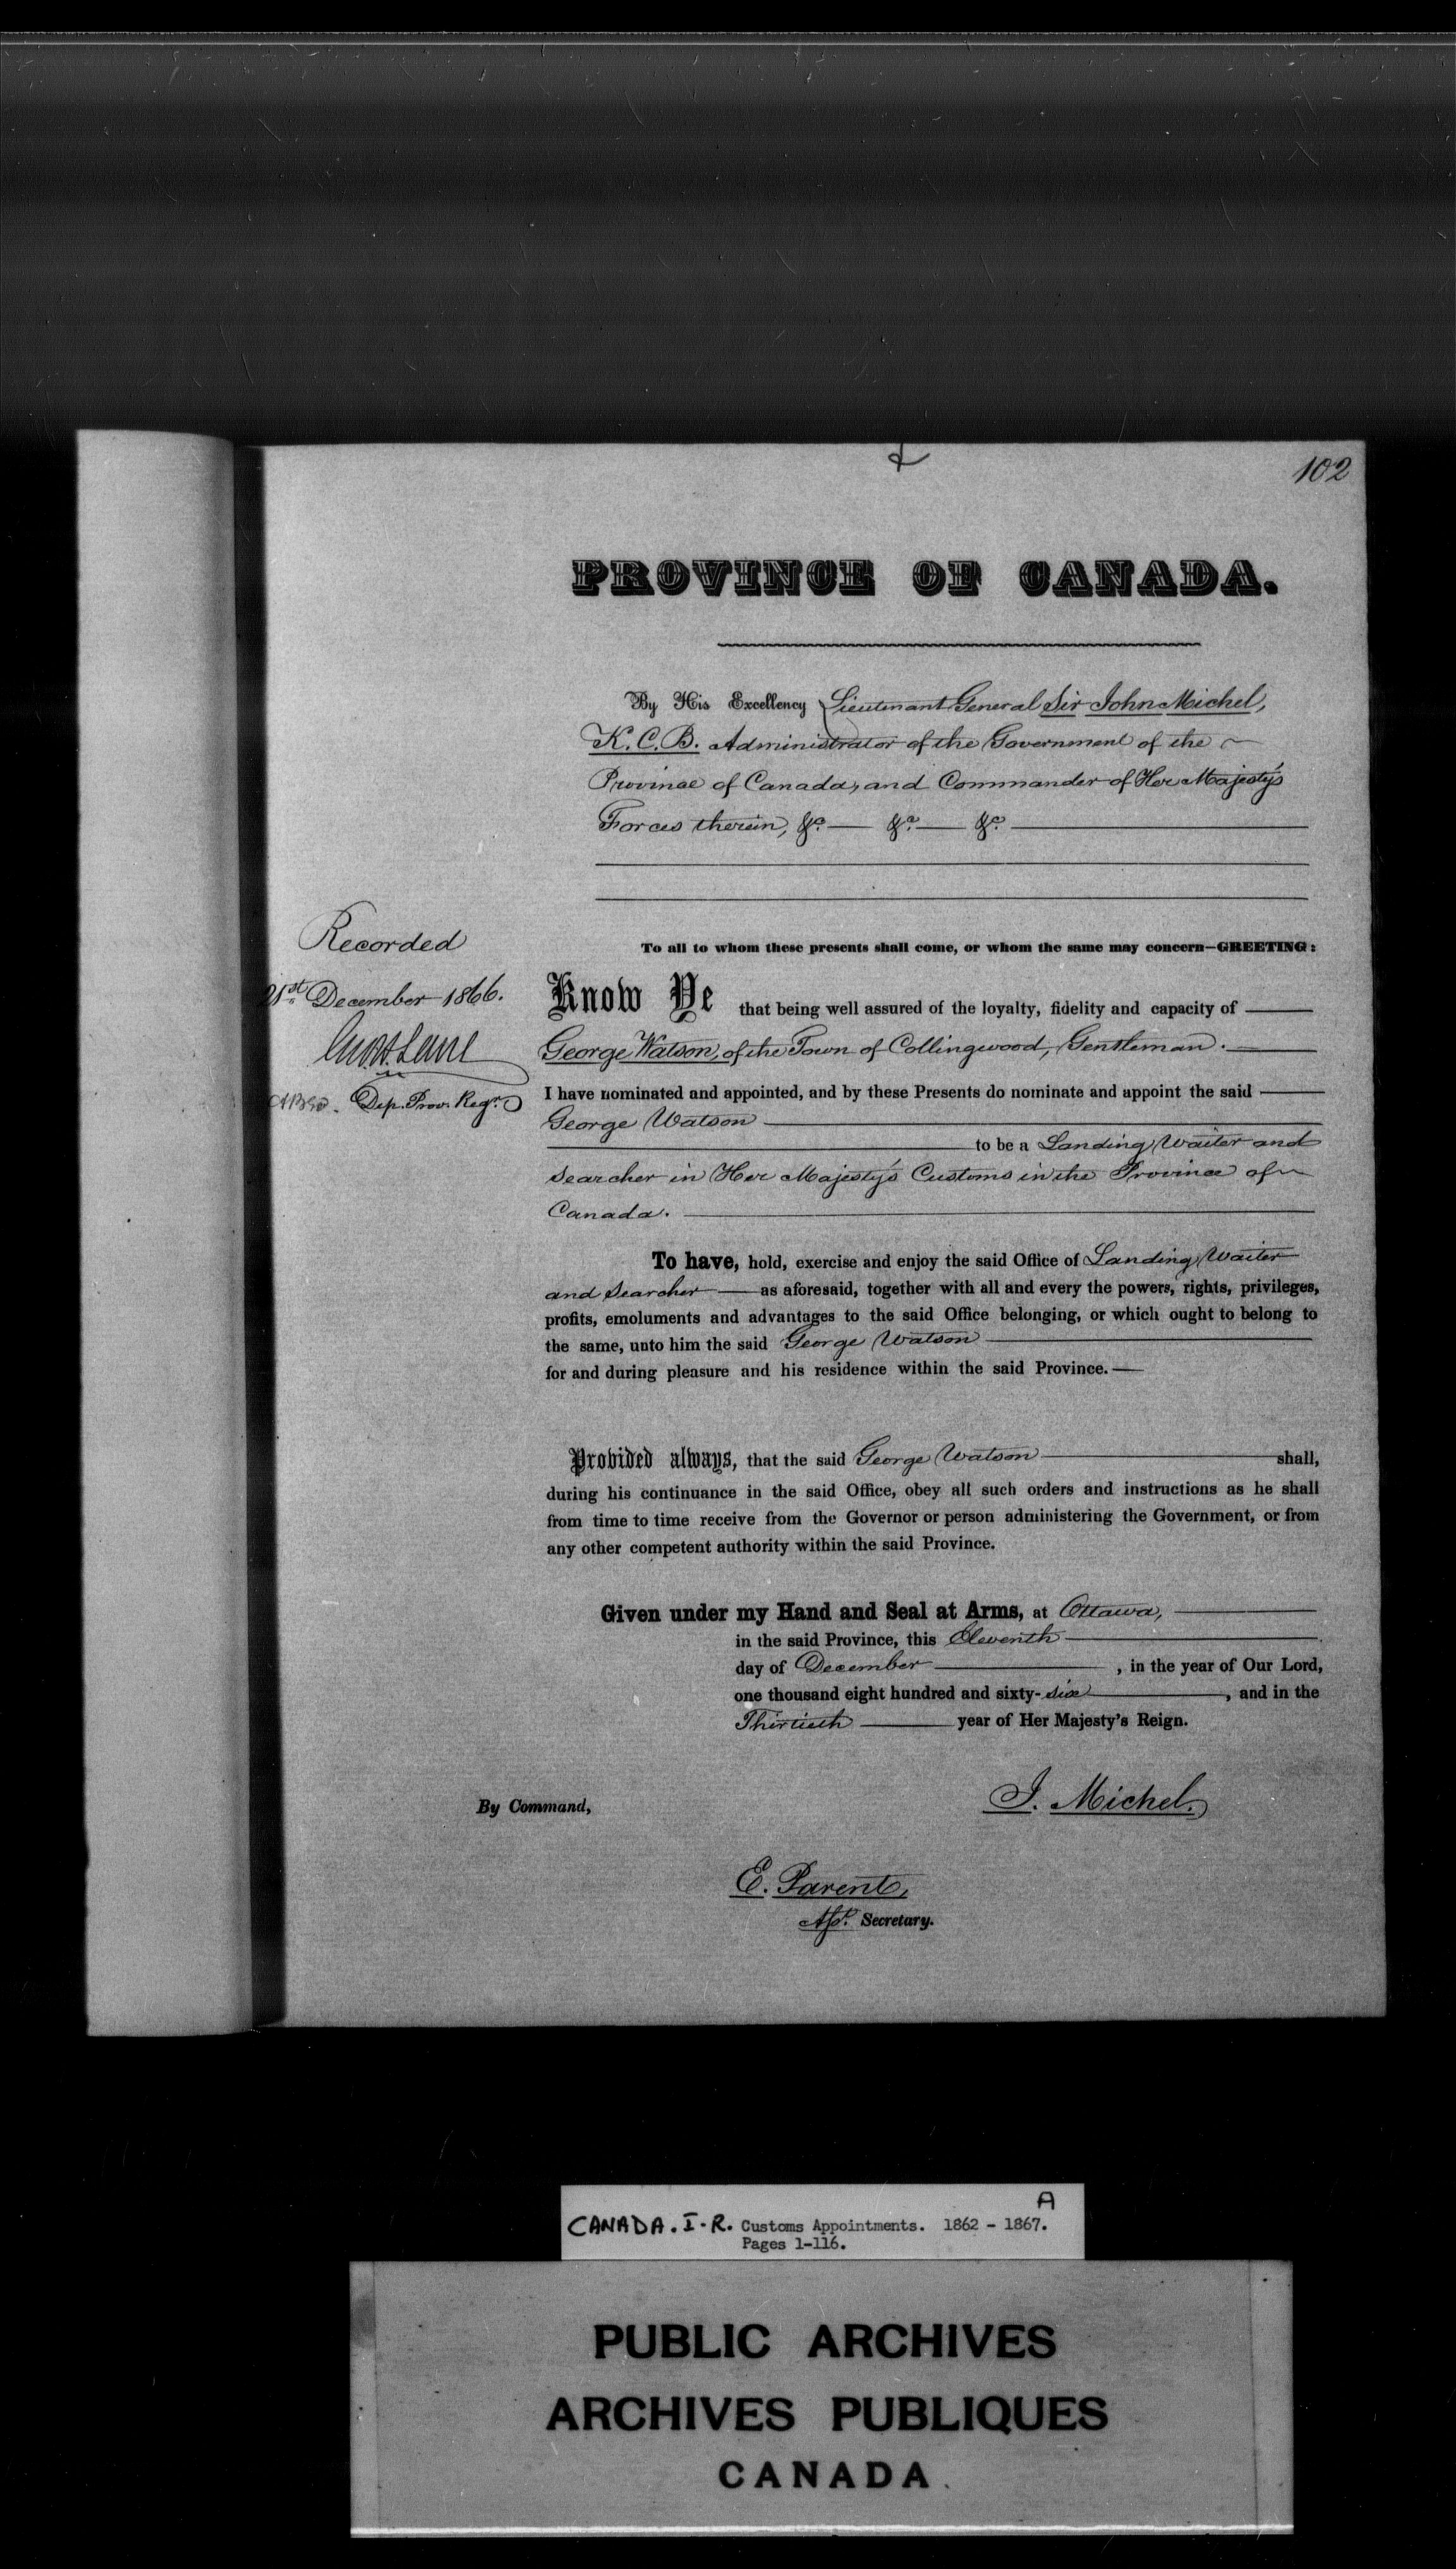 102
PROVINCE OF CANADA.
By His Excellency Lieutenant General Sir John Michel,
K.C.B. Administrator of the Government of the
Province of Canada, and Commander of Her Majesty's
Forces therein, &c. &c. &c.
To all to whom these presents shall come, or whom the same may concern—GREETING:
Recorded
21st December 1866.
Dep. Prov. Regr.
Know Ye that being well assured of the loyalty, fidelity and capacity of
George Watson, of the Town of Collingwood, Gentleman.
I have nominated and appointed, and by these Presents do nominate and appoint the said
George Watson
to be a Landing Waiter and
Searcher in Her Majesty's Customs in the Province of
Canada.
To have, hold, exercise and enjoy the said Office of Landing Waiter
and Searcher — as aforesaid, together with all and every the powers, rights, privileges,
profits, emoluments and advantages to the said Office belonging, or which ought to belong to
the same, unto him the said George Watson
for and during pleasure and his residence within the said Province.—
Provided always, that the said George Watson shall,
during his continuance in the said Office, obey all such orders and instructions as he shall
from time to time receive from the Governor or person administering the Government, or from
any other competent authority within the said Province.
Given under my Hand and Seal at Arms, at Ottawa,
in the said Province, this Eleventh
day of December , in the year of Our Lord,
one thousand eight hundred and sixty-six , and in the
Thirtieth year of Her Majesty's Reign.
J. Michel.
By Command,
E. Parent,
Asst. Secretary.
A
CANADA. I-R. Customs Appointments. 1862 - 1867.
Pages 1-116.
PUBLIC ARCHIVES
ARCHIVES PUBLIQUES
CANADA